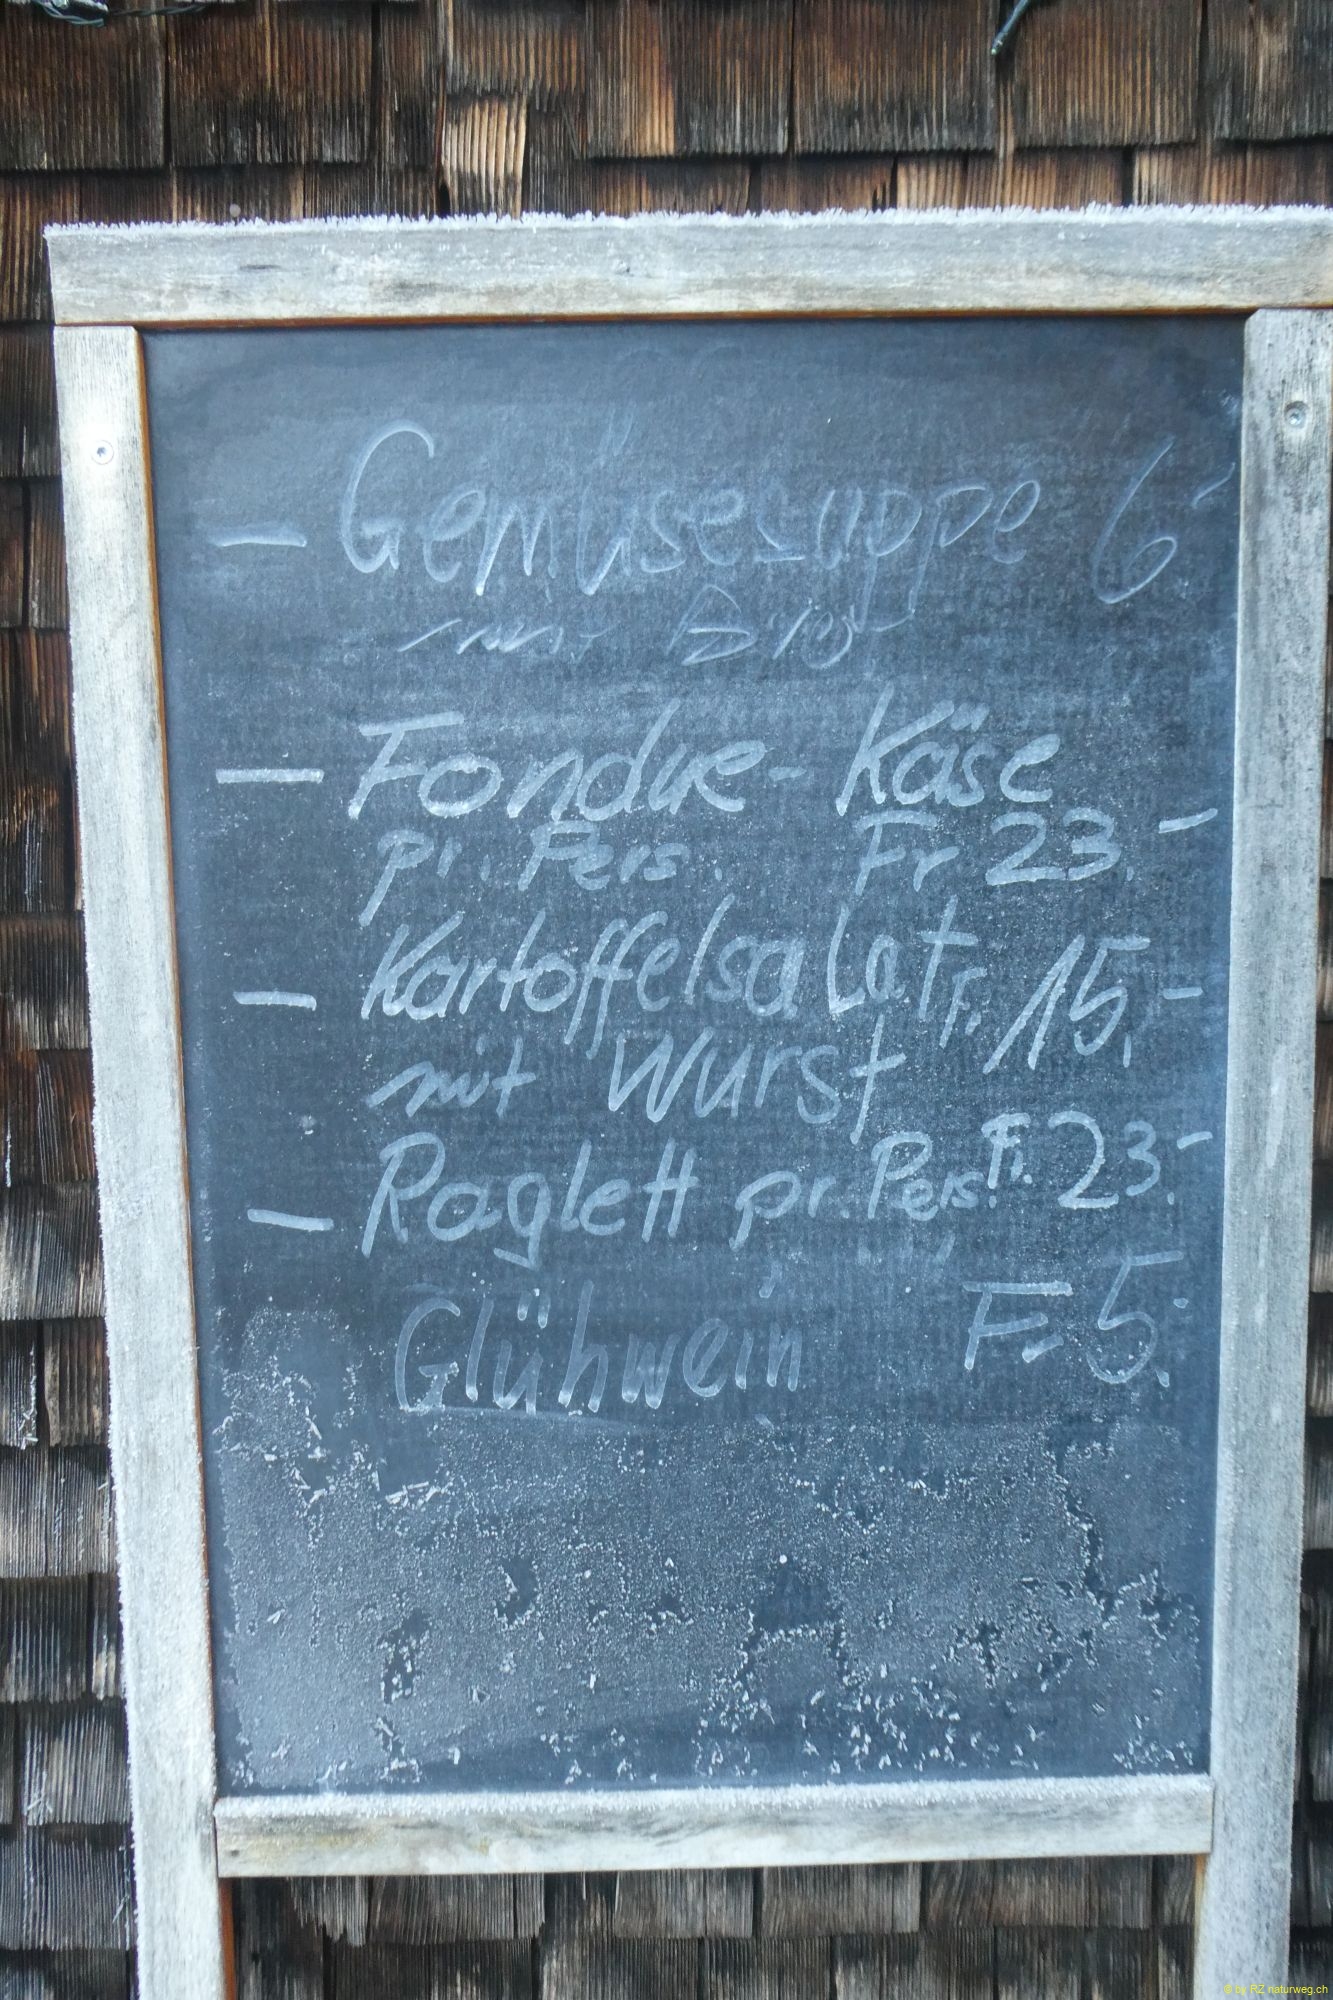 – Gemüsesuppe 6.-
mit Brot
– Fondue - Käse
pr. Pers. Fr 23.-
– Kartoffelsalat Fr. 15.-
mit Wurst
– Raglett pr. Pers. Fr. 23.-
Glühwein Fr 5.-
© by RZ naturweg.ch